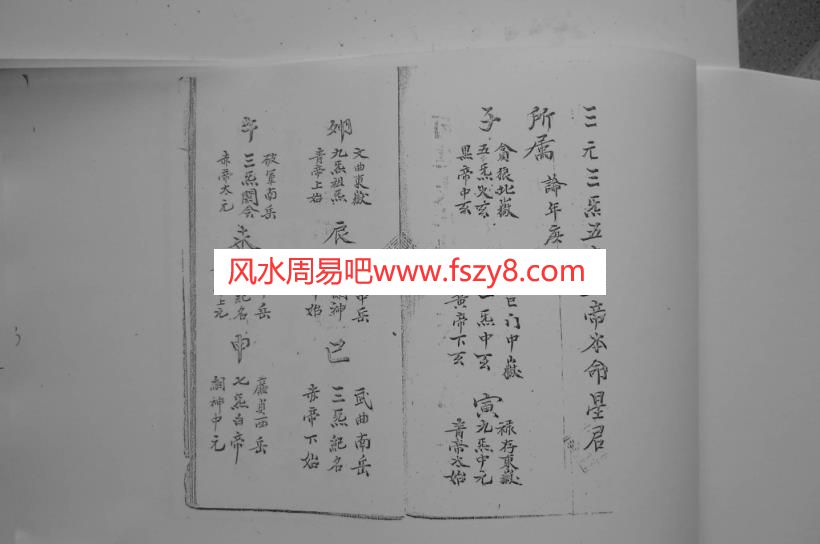 三元三炁五
帝本命星君
所属
論年庚
子
貪狼北嶽
五炁火玄
黑帝中玄
巨门中嶽
一炁中玄
黄帝下玄
寅
禄存東嶽
九炁中元
青帝太始
卯
文曲東嶽
九炁祖炁
青帝上始
辰
中岳
嗣神
下始
巳
武曲南岳
三炁紀名
赤帝下始
午
破軍南岳
三炁開合
赤帝太元
未
岳
紀名
上元
申
廉貞西岳
七炁白帝
嗣神中元
风水周易吧www.fszy8.com